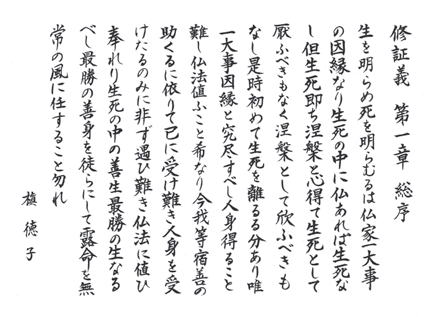 修証義 第一章 総序
生を明らめ死を明らむるは仏家一大事
の因縁なり生死の中に仏あれば生死な
し但生死即ち涅槃と心得て生死として
厭ふべきもなく涅槃として欣ふべきも
なし是時初めて生死を離るる分あり唯
一大事因縁と究尽すべし人身得ること
難し仏法値ふこと希なり今我等宿善の
助くるに依りて已に受け難き人身を受
けたるのみに非ず遇ひ難き仏法に値ひ
奉れり生死の中の善生最勝の生なる
べし最勝の善身を徒らにして露命を無
常の風に任すること勿れ
槙徳子